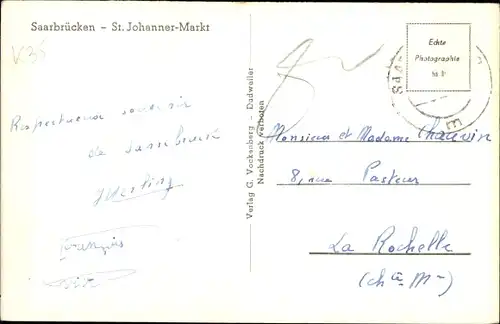 Saarbrücken – St. Johanner-Markt
K38
Echte
Photographie
Respectueux souvenir
de Sarrebruck
François
Verlag G. Vockenberg - Dudweiler
Nachdruck verboten
Monsieur et Madame Chauvin
8, rue Pasteur
La Rochelle
(Ch te Mme)